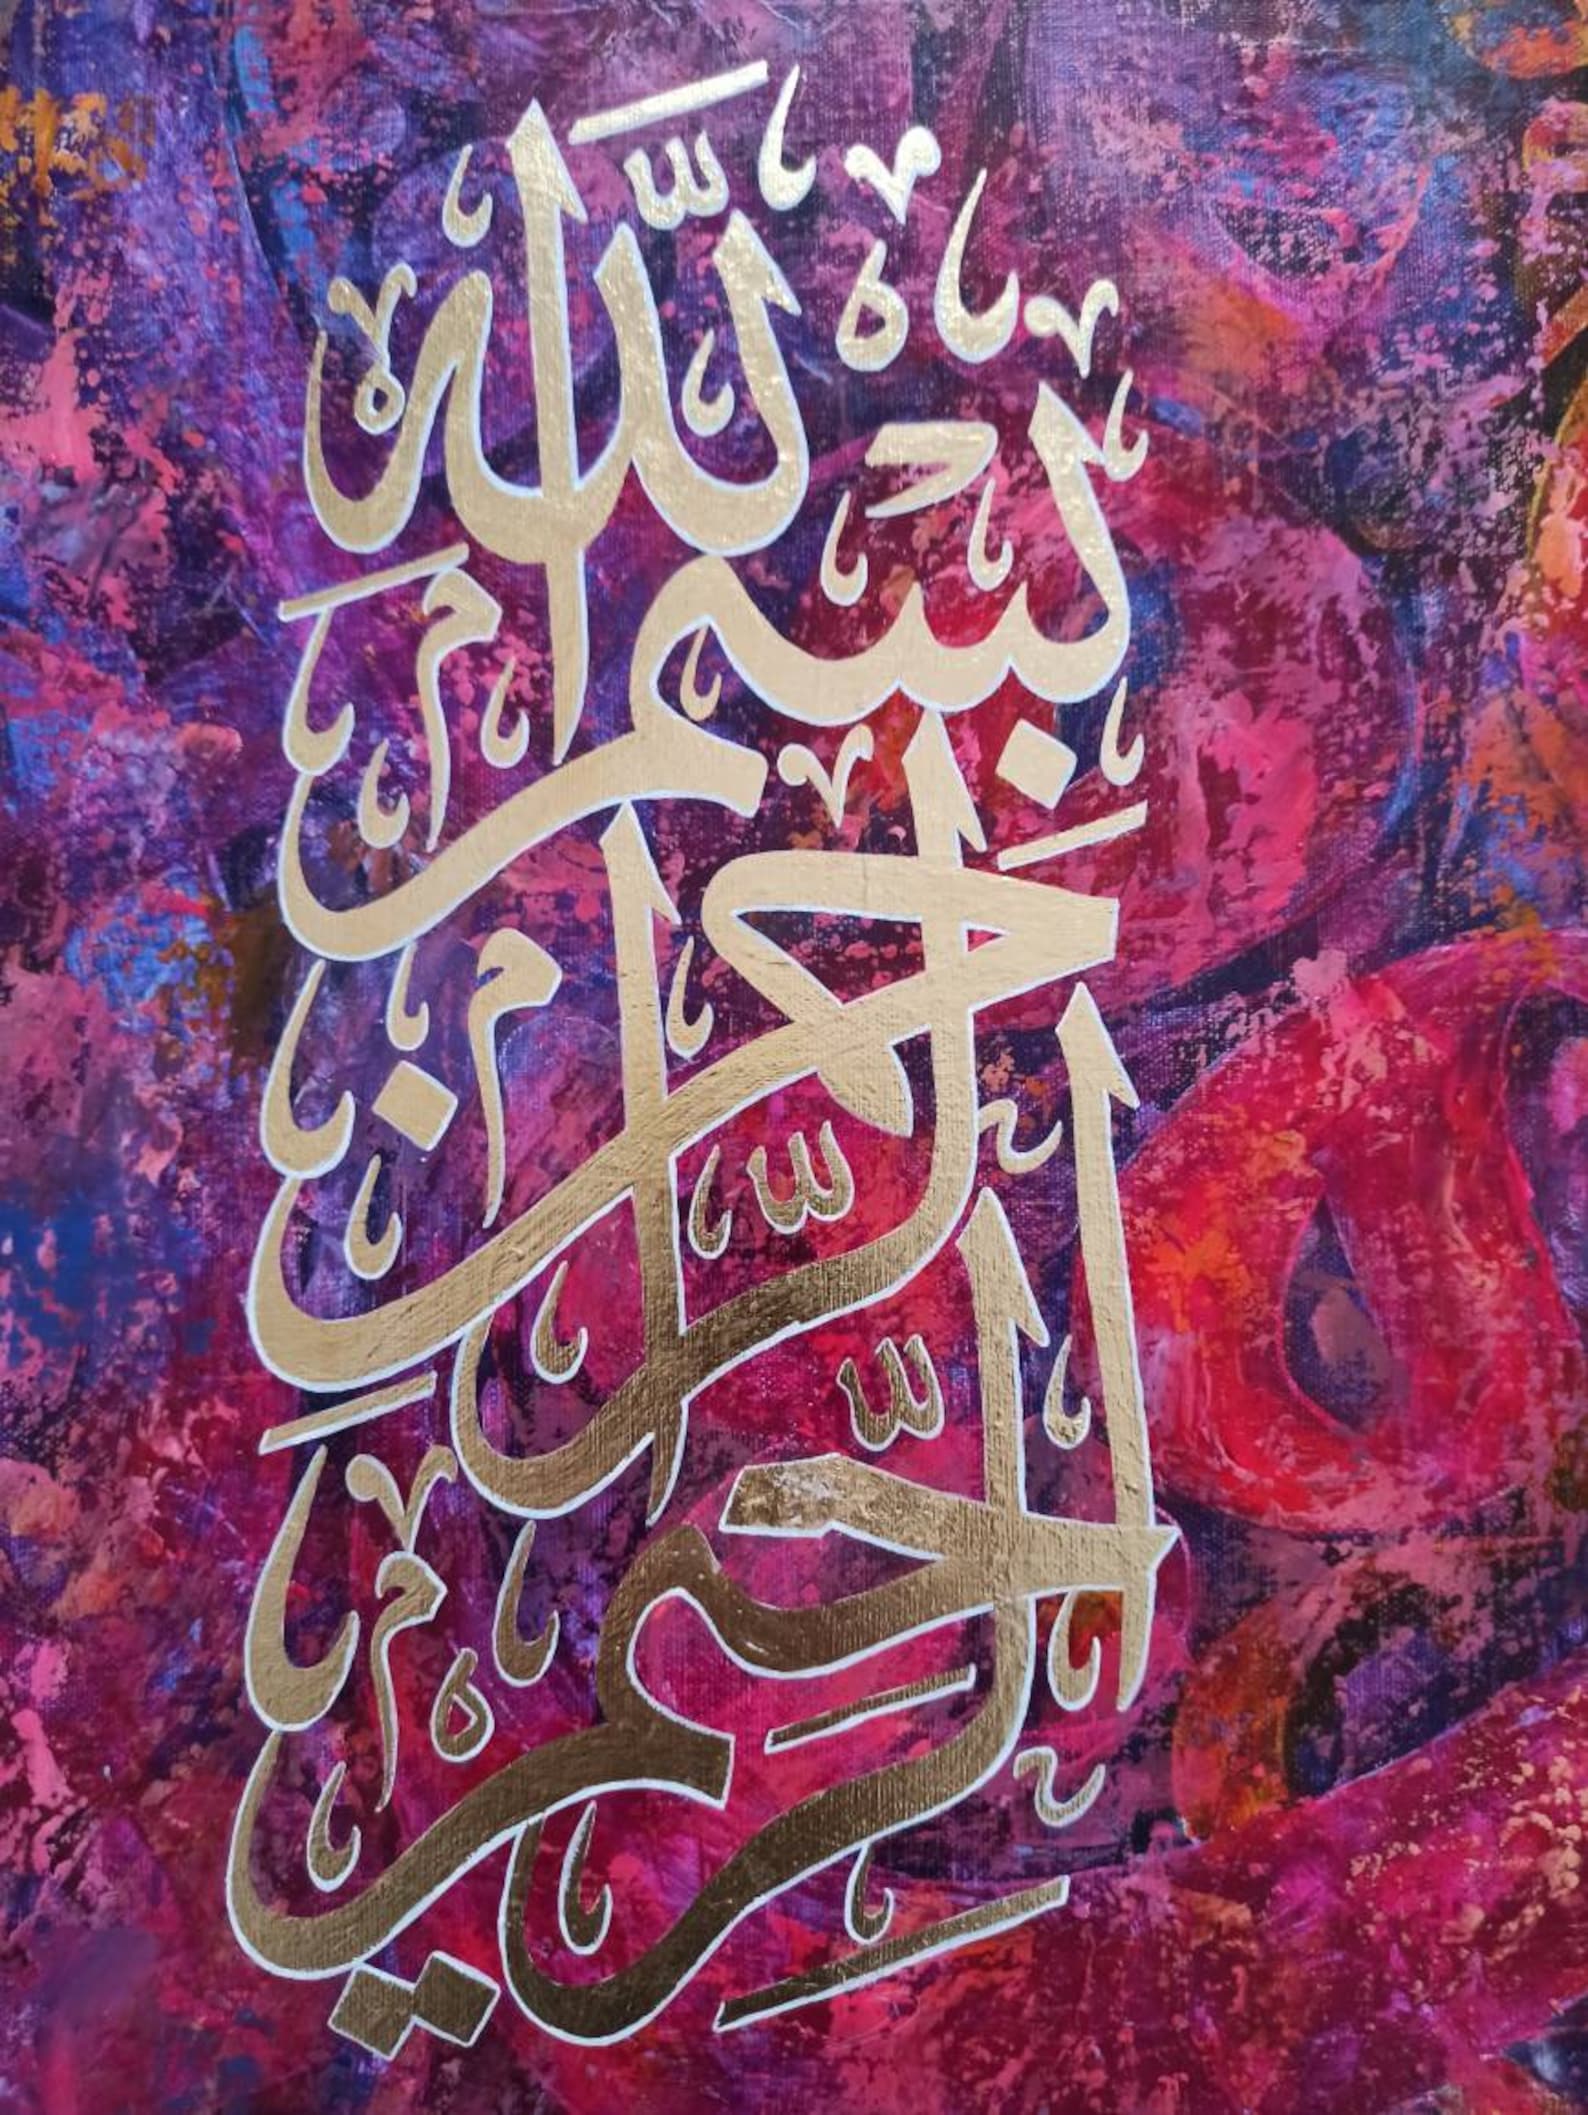 بِسْمِ اللَّهِ
الرَّحْمَٰنِ
الرَّحِيمِ